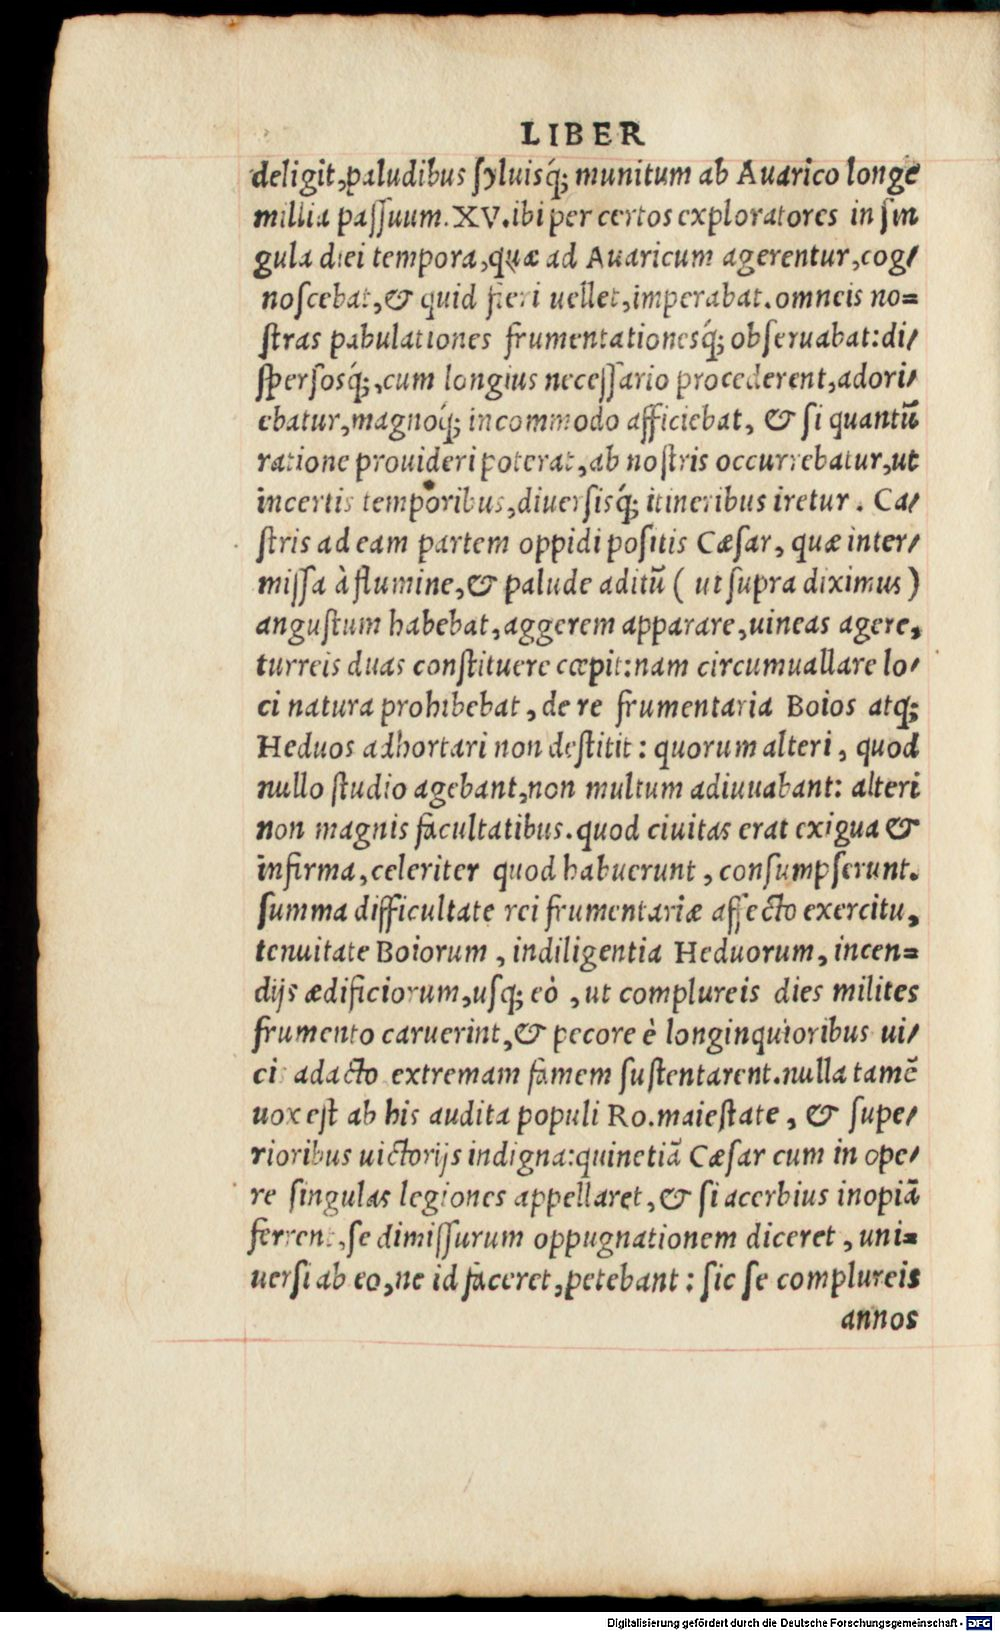 LIBER
deligit,paludibus ſyluisq́; munitum ab Auarico longe
millia paſſuum.XV.ibi per certos exploratores in ſin
gula diei tempora,quæ ad Auaricum agerentur,cog/
noſcebat,& quid fieri uellet,imperabat.omneis no=
ſtras pabulationes frumentationesq́; obſeruabat:di/
ſperſosq́;,cum longius neceſſario procederent,adori/
ebatur,magnoq́; incommodo afficiebat, & ſi quantū
ratione prouideri poterat,ab noſtris occurrebatur,ut
incertis temporibus,diuerſisq́; itineribus iretur. Ca/
ſtris ad eam partem oppidi poſitis Cæſar, quæ inter/
miſſa à flumine,& palude aditū ( ut ſupra diximus )
anguſtum habebat,aggerem apparare,uineas agere,
turreis duas conſtituere cœpit:nam circumuallare lo/
ci natura prohibebat, de re frumentaria Boios atq;
Heduos adhortari non deſtitit: quorum alteri, quod
nullo ſtudio agebant,non multum adiuuabant: alteri
non magnis facultatibus.quod ciuitas erat exigua &
infirma,celeriter quod habuerunt, conſumpſerunt.
ſumma difficultate rei frumentariæ affecto exercitu,
tenuitate Boiorum, indiligentia Heduorum, incen=
dijs ædificiorum,uſq; eò, ut complureis dies milites
frumento caruerint,& pecore è longinquioribus ui/
cis adacto extremam famem ſuſtentarent.nulla tamē
uox eſt ab his audita populi Ro.maieſtate, & ſupe/
rioribus uictorijs indigna:quinetiā Cæſar cum in ope/
re ſingulas legiones appellaret,& ſi acerbius inopiā
ferrent,ſe dimiſſurum oppugnationem diceret, uni=
uerſi ab eo,ne id faceret,petebant: ſic ſe complureis
annos
Digitalisierung gefördert durch die Deutsche Forschungsgemeinschaft - DFG